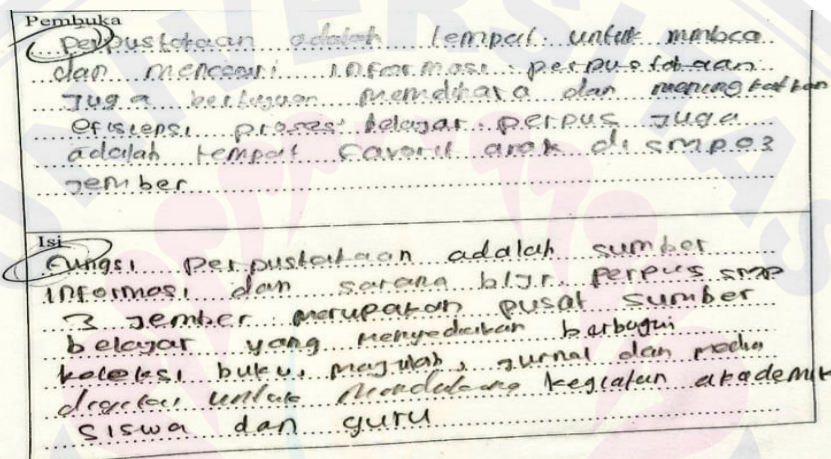 Pembuka
perpustakaan adalah tempat untuk mmbca
dan mencari informasi perpustakaan
Juga bertujuan memelihara dan meningkatkan
efisiensi proses belajar perpus Juga
adalah tempat favorit anak di smp 03
Jember
Isi
fungsi perpustakaan adalah sumber
informasi dan sarana bljr perpus smp
3 Jember merupakan pusat sumber
belajar yang menyediakan berbagai
koleksi buku, majalah, jurnal dan media
digital untuk mendukung kegiatan akademik
siswa dan guru